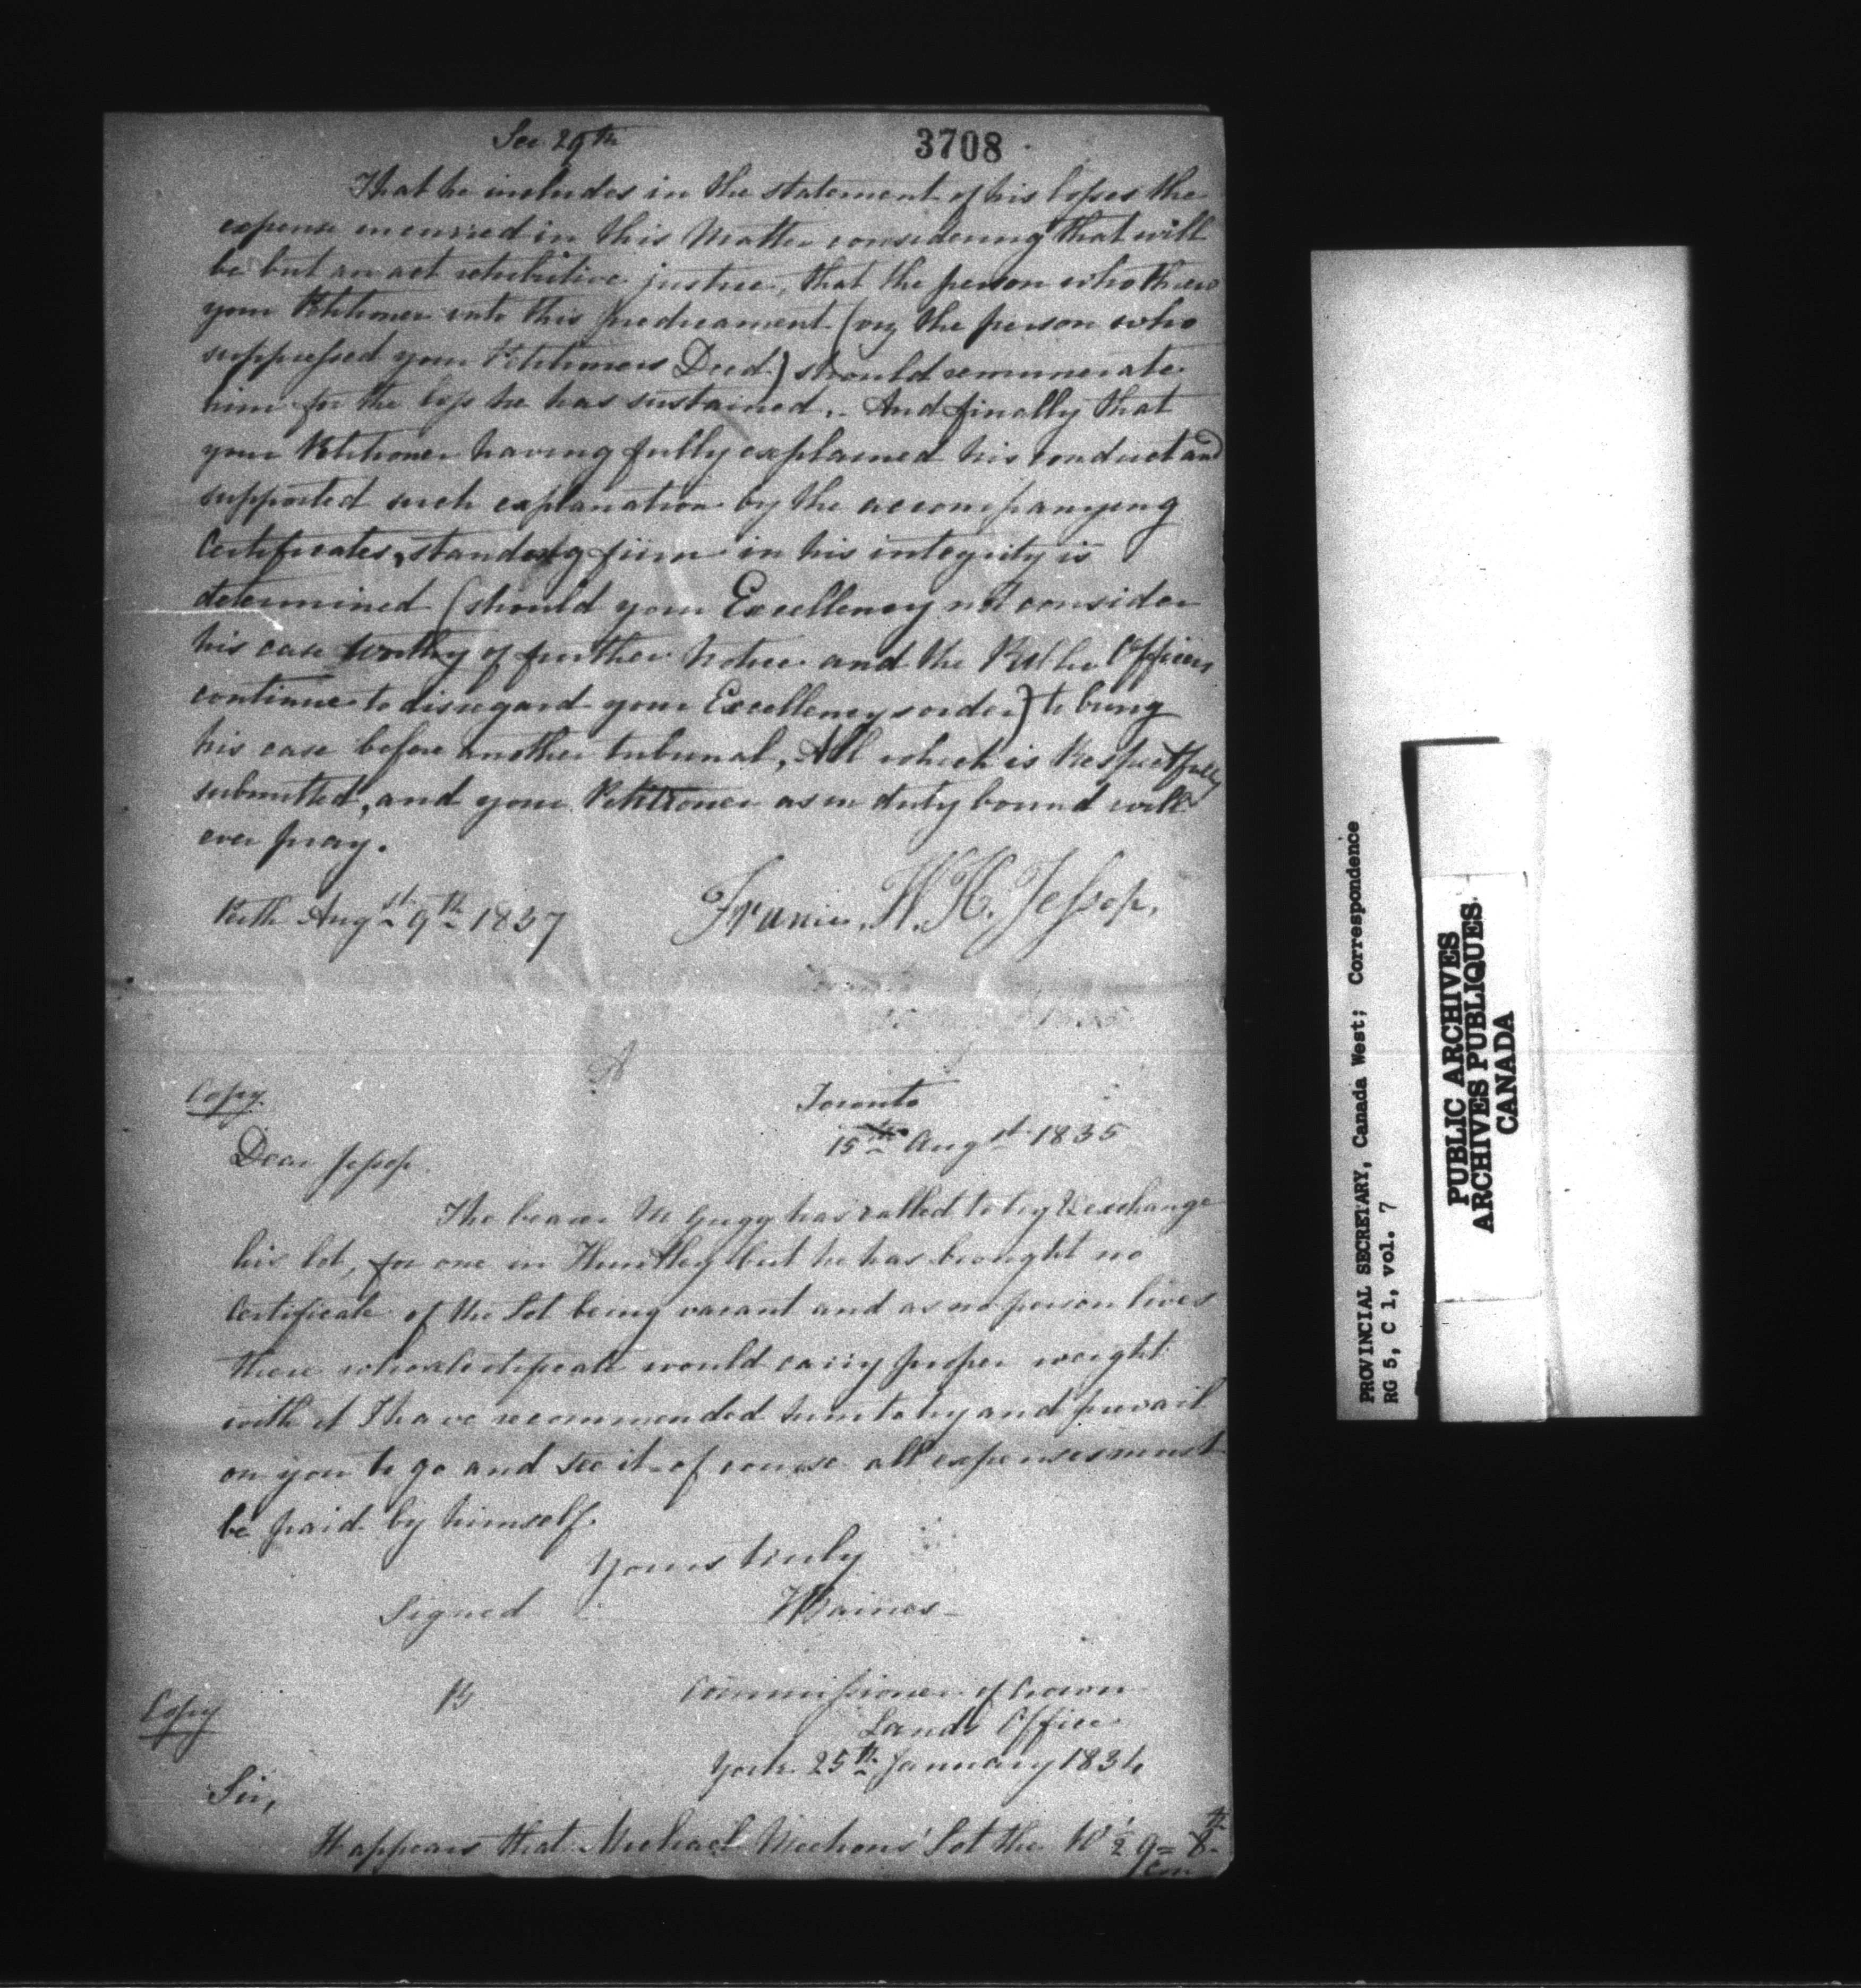 Sec 29th
3708
That he includes in the statement of his losses the
expense incurred in this Matter considering that will
be but an act retributive justice, that the person who threw
your Petitioner into this predicament (viz the person who
suppressed your Petitioners Deed) should remunerate
him for the loss he has sustained. And finally that
your Petitioner having fully explained his conduct and
supported such explanation by the accompanying
Certificates, standing firm in his integrity is
determined (should your Excellency not consider
his case worthy of further notice and the Public Officers
continue to disregard your Excellencys order) to bring
his case before another tribunal, All which is Respectfully
submitted, and your Petitioner as in duty bound will
ever pray.
Perth Augst 9th 1837
Francis W. H. Jessop.
A
Copy
Toronto
15th Augst 1835
Dear Jessop
The bearer Mc Gugg has called to try & exchange
his lot, for one in Huntley but he has brought no
Certificate of the Lot being vacant and as no person lives
there whose Certificate would carry proper weight
with it I have recommended him to try and prevail
on you to go and see it - of course all expenses must
be paid by himself.
Yours truly
Signed
Baines
Copy
B
Commissioner of Crown
Lands Office
York 25th January 1834
Sir,
It appears that Michael Meehons' Lot the W 1/2 9 = 8th
Con
PROVINCIAL SECRETARY, Canada West; Correspondence
RG 5, C 1, vol. 7
PUBLIC ARCHIVES
ARCHIVES PUBLIQUES
CANADA